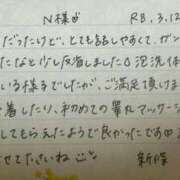 N様 R8.3.12
だったけど、とても話しやすくて、ガン
たなと少し反省しました 泡洗体
いる様でしたが、ご満足頂けま
着したり、初めての睾丸マッサージ
してもらえたようで良かったです
せて下さいね
新條